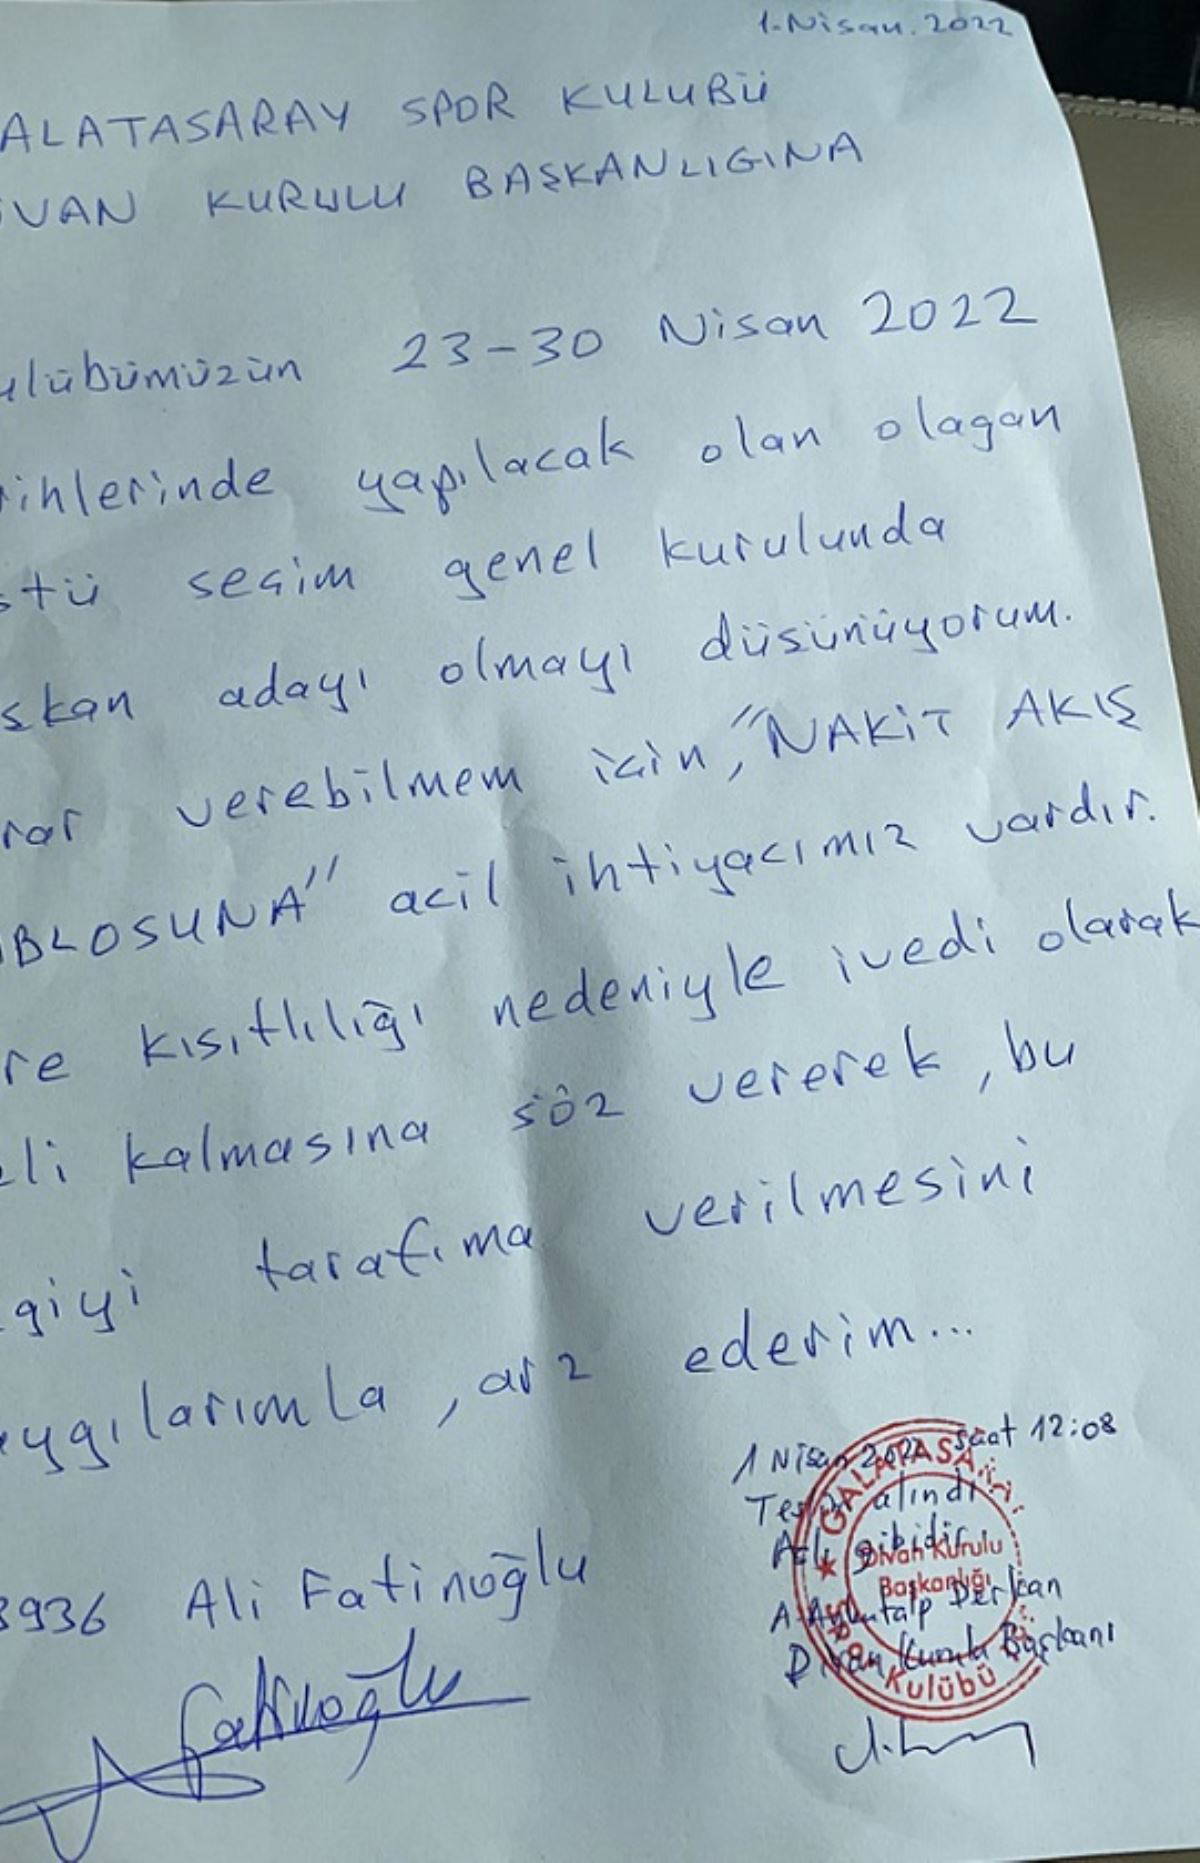 1.Nisan.2022
ALATASARAY SPOR KULUBÜ
İVAN KURULU BAŞKANLIGINA
ulübümüzün 23-30 Nisan 2022
rihlerinde yapılacak olan olagan
stü seçim genel kurulunda
şkan adayı olmayı düşünüyorum.
rar verebilmem için, "NAKİT AKIŞ
BLOSUNA" acil ihtiyacımız vardır.
re kısıtlılığı nedeniyle ivedi olarak
li kalmasına söz vererek, bu
giyi tarafıma verilmesini
aygılarımla, arz ederim...
1 Nisan 2022 saat 12:08
alındı
gibidir
A. Aykutalp Derkan
Divan Kurulu Başkanı
GALATASARAY
Divan Kurulu
Başkanlığı
Kulübü
3936 Ali Fatinoğlu
Fatinoğlu